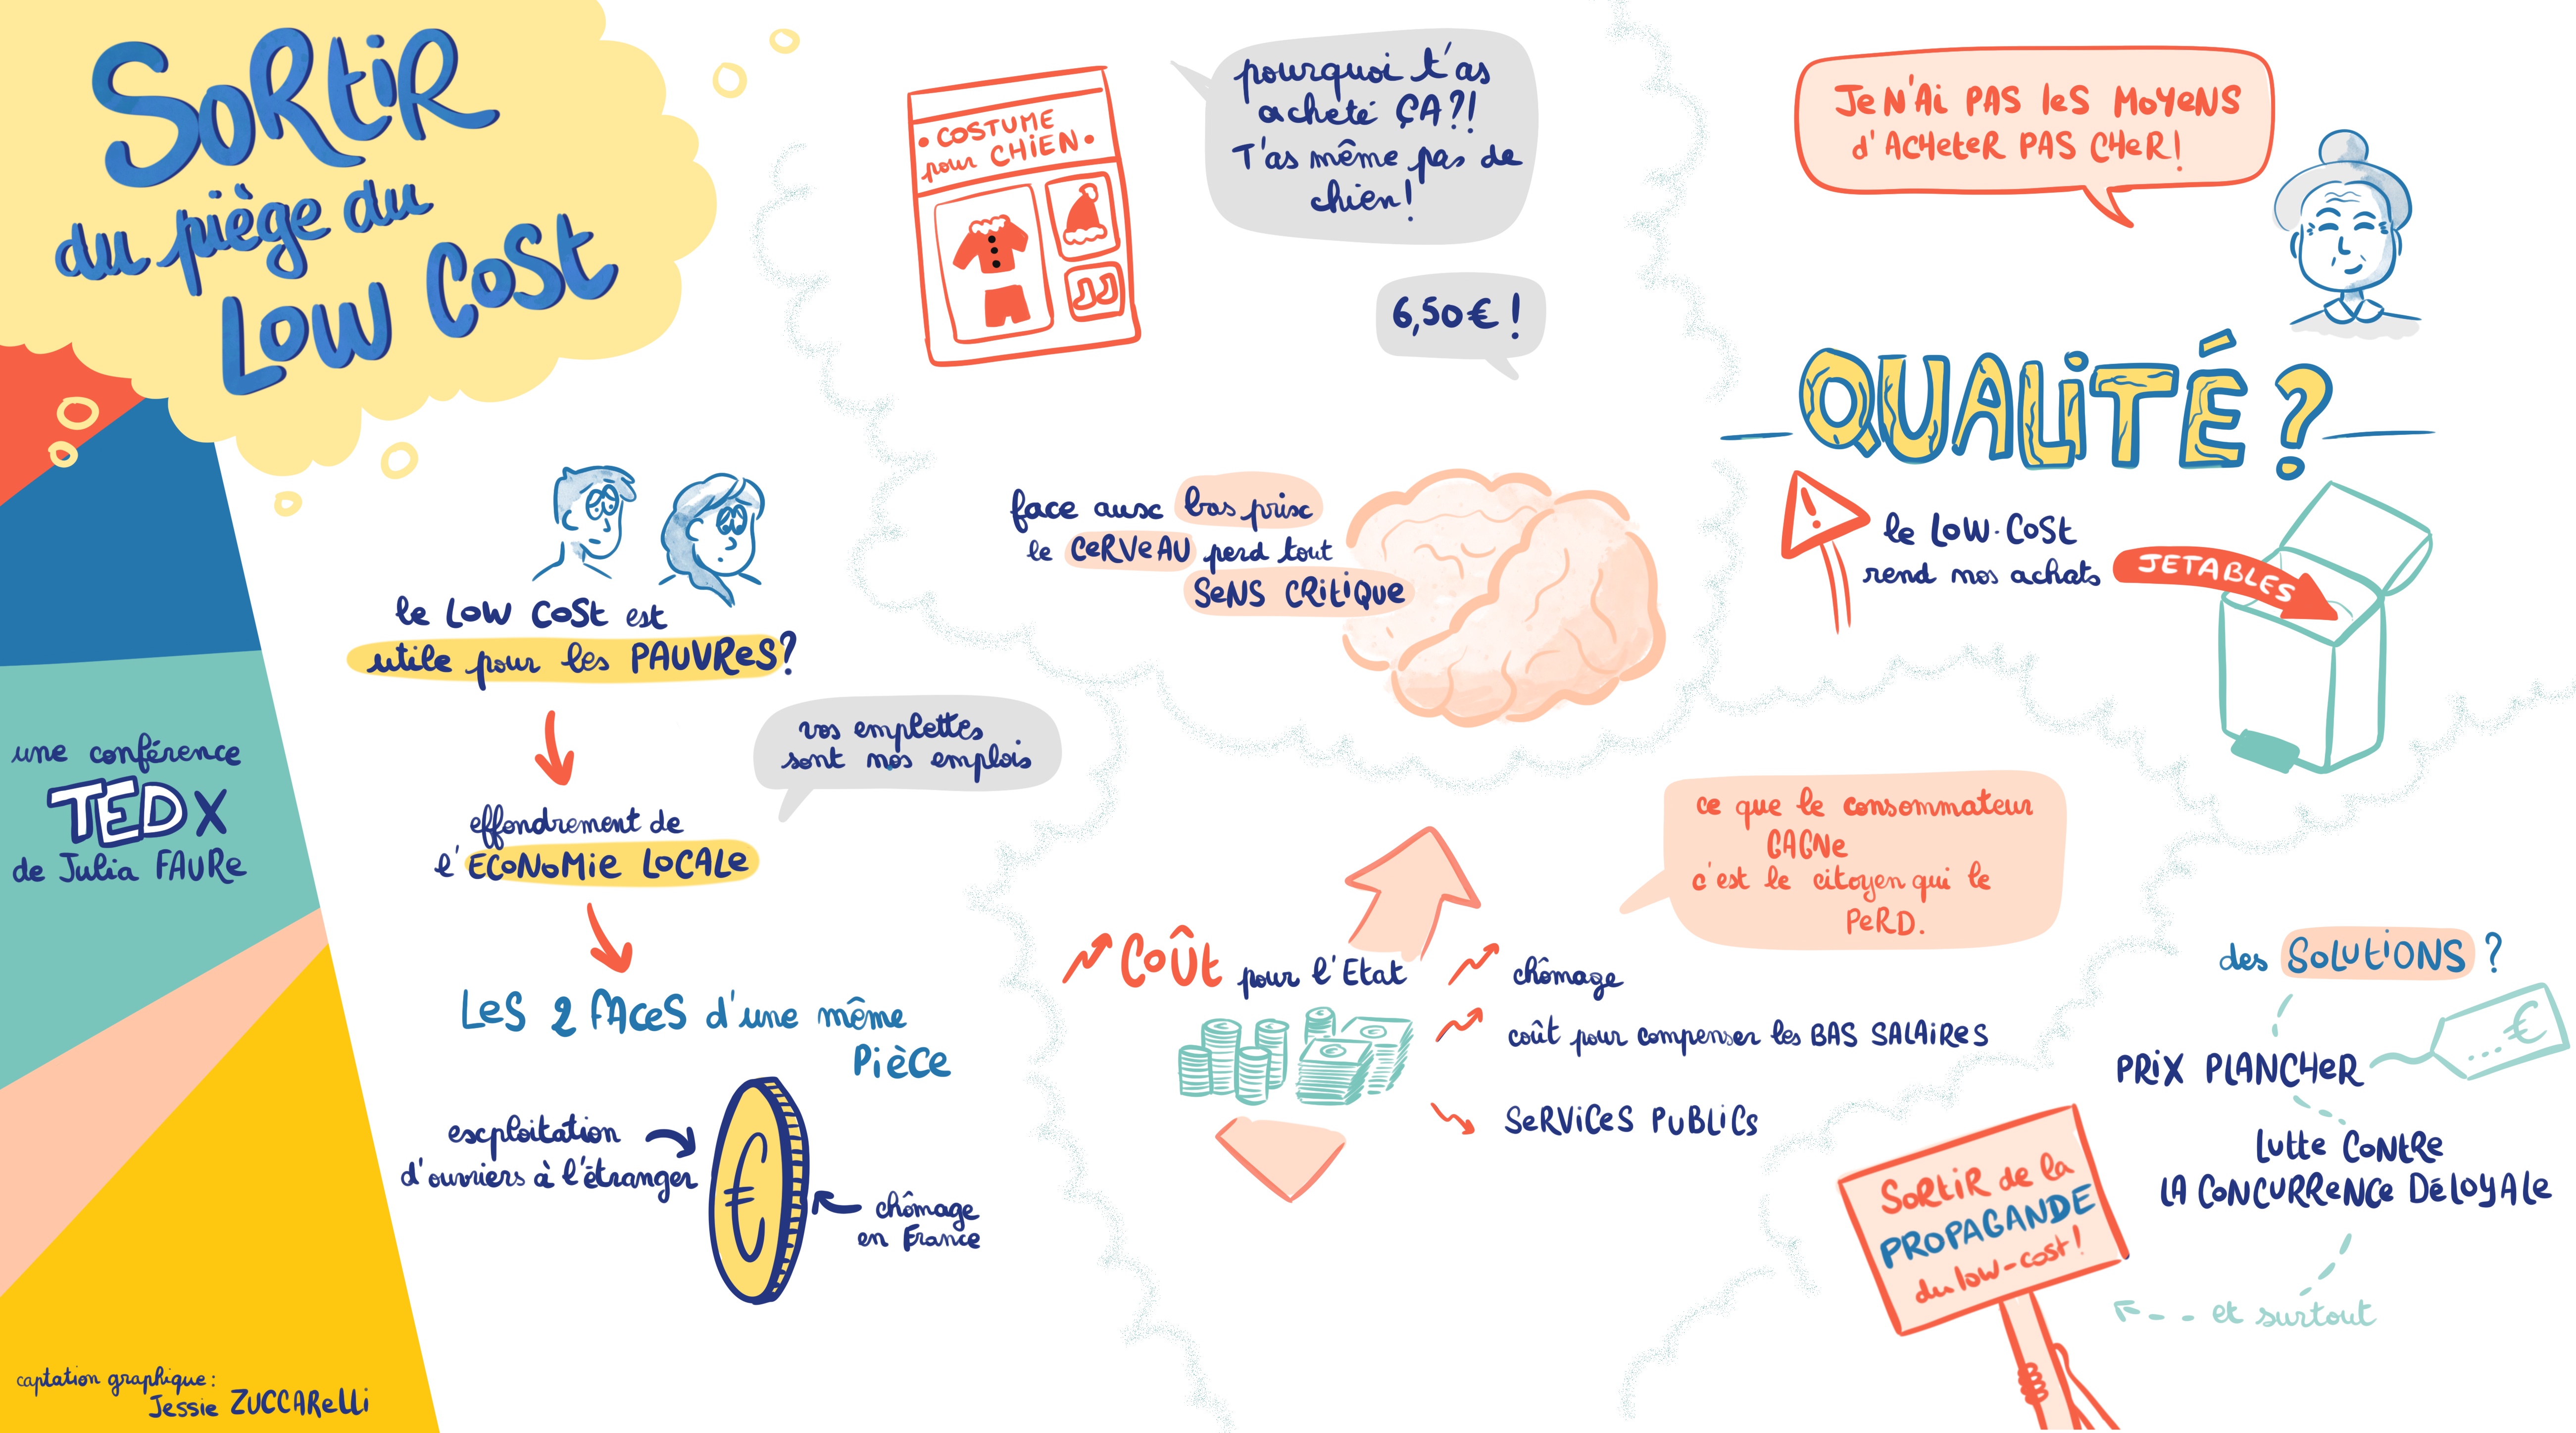 SORTIR
du piège du
LOW COST
une conférence
TEDX
de Julia FAURE
captation graphique :
Jessie ZUCCARELLI
le LOW COST est
utile pour les PAUVRES?
vos emplettes
sont nos emplois
effondrement de
l'ECONOMIE LOCALE
LES 2 FACES d'une même
PIÈCE
exploitation
d'ouvriers à l'étranger
€
chômage
en France
• COSTUME
pour CHIEN •
pourquoi t'as
acheté ÇA?!
T'as même pas de
chien!
6,50€ !
face aux bas prix
le CERVEAU perd tout
SENS CRITIQUE
JE N'AI PAS LES MOYENS
d'ACHETER PAS CHER!
QUALITÉ ?
!
le LOW-COST
rend nos achats
JETABLES
ce que le consommateur
GAGNE
c'est le citoyen qui le
PERD.
COÛT pour l'Etat
chômage
coût pour compenser les BAS SALAIRES
SERVICES PUBLICS
des SOLUTIONS ?
... €
PRIX PLANCHER
LUTTE CONTRE
LA CONCURRENCE DÉLOYALE
et surtout
SORTIR de la
PROPAGANDE
du low-cost!